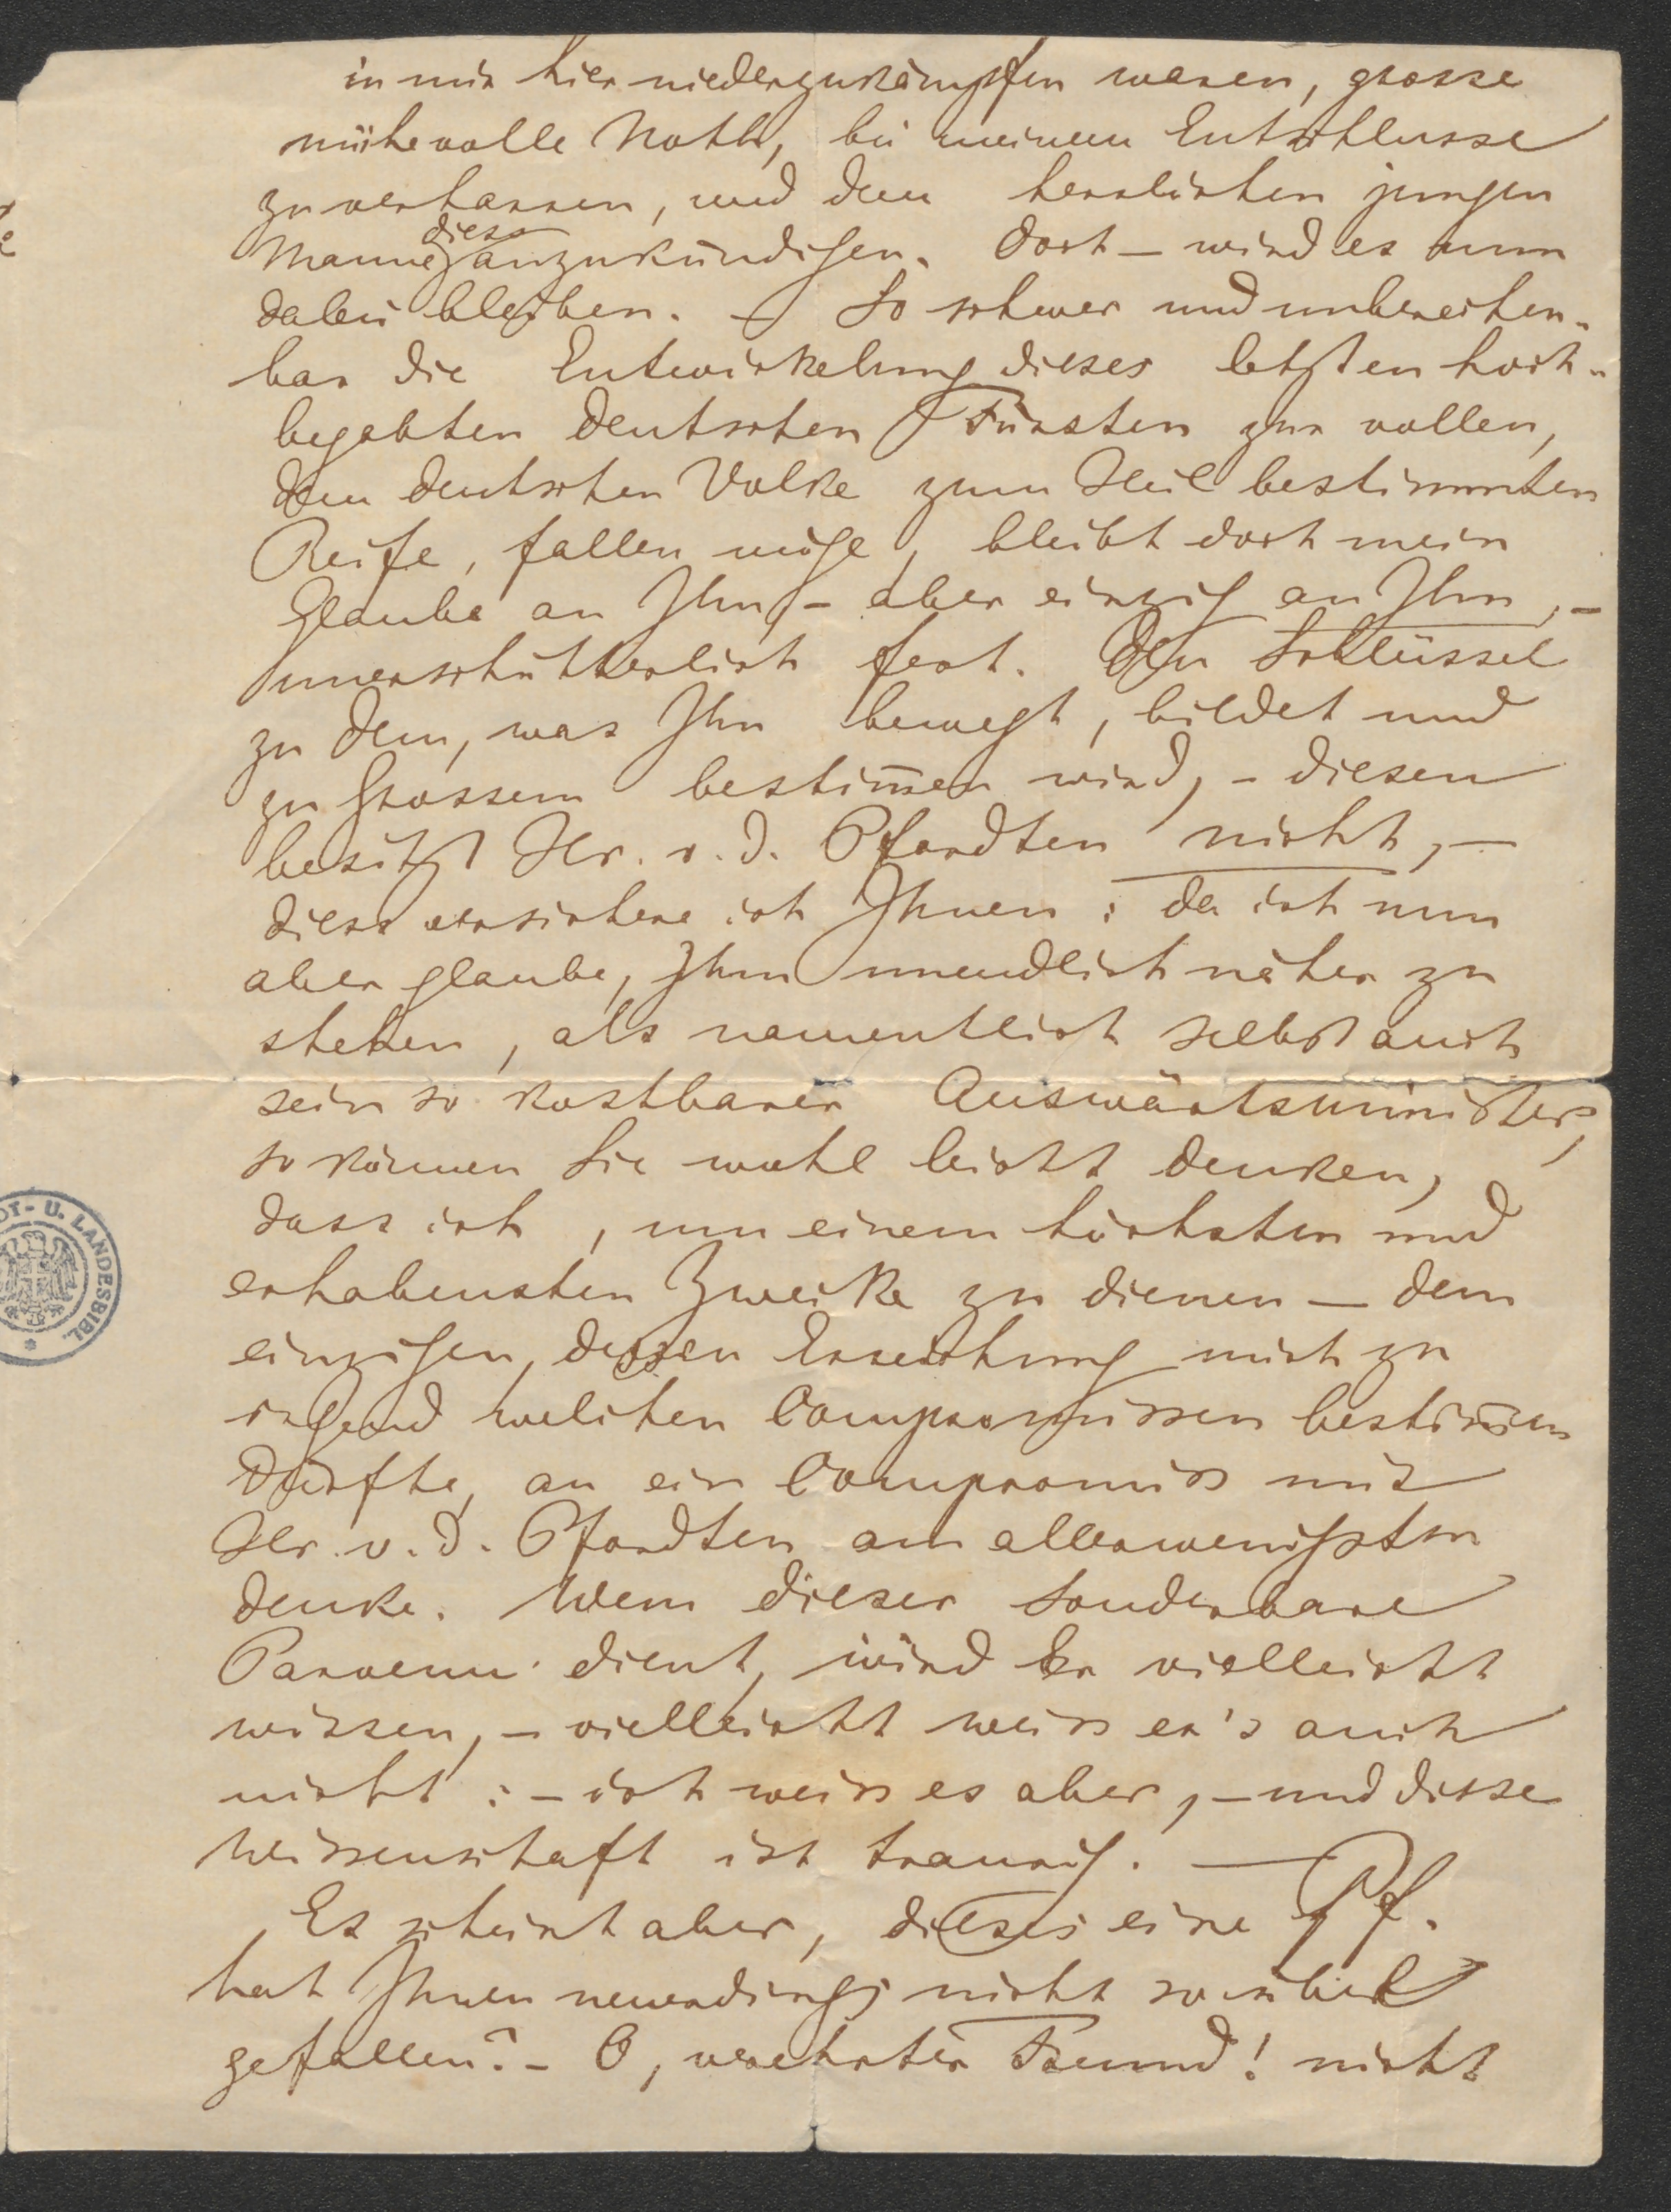 in mir hier niederzukämpfen waren, grosse
mühevolle Noth, bei meinem Entschlusse
zu verharren, und dem herrlichen jungen
Manne diess anzukündigen. Doch – wird es nun
dabei bleiben. – So schwer und unberechen-
bar die Entwickelung dieses letzten hoch-
begabten deutschen Fürsten zur vollen,
dem deutschen Volke zum Heil bestimmten
Reife, fallen möge, bleibt doch mein
Glaube an Ihn, – aber einzig an Ihn, –
unerschütterlich fest. Den Schlüssel
zu dem, was Ihn bewegt, bildet und
zu Grossem bestim̄en wird, – diesen
besitzt Hr. v. d. Pfordten nicht, –
diess versichere ich Ihnen: da ich nun
aber glaube, Ihm unendlich näher zu
stehen, als namentlich selbst auch
sein so kostbarer Auswärtsminister,
so können Sie wohl leicht denken,
dass ich, um einem höchsten und
erhabensten Zwecke zu dienen – dem
einzigen, dessen Erreichung mich zu
irgend welchen Compromissen bestim̄en
dürfte, an ein Compromiss mit
Hr. v. d. Pfordten am allerwenigsten
denke. Wem dieser sonderbare
Parvenu dient, wird Er vielleicht
wissen, – vielleicht weiss er's auch
nicht: – ich weiss es aber, – und diese
Wissenschaft ist traurig. —
Es scheint aber, dieses eine Pf.
hat Ihnen neuerdings nicht so übel
gefallen? – O, verehrter Freund! nicht
DT- U. LANDESBIBL.